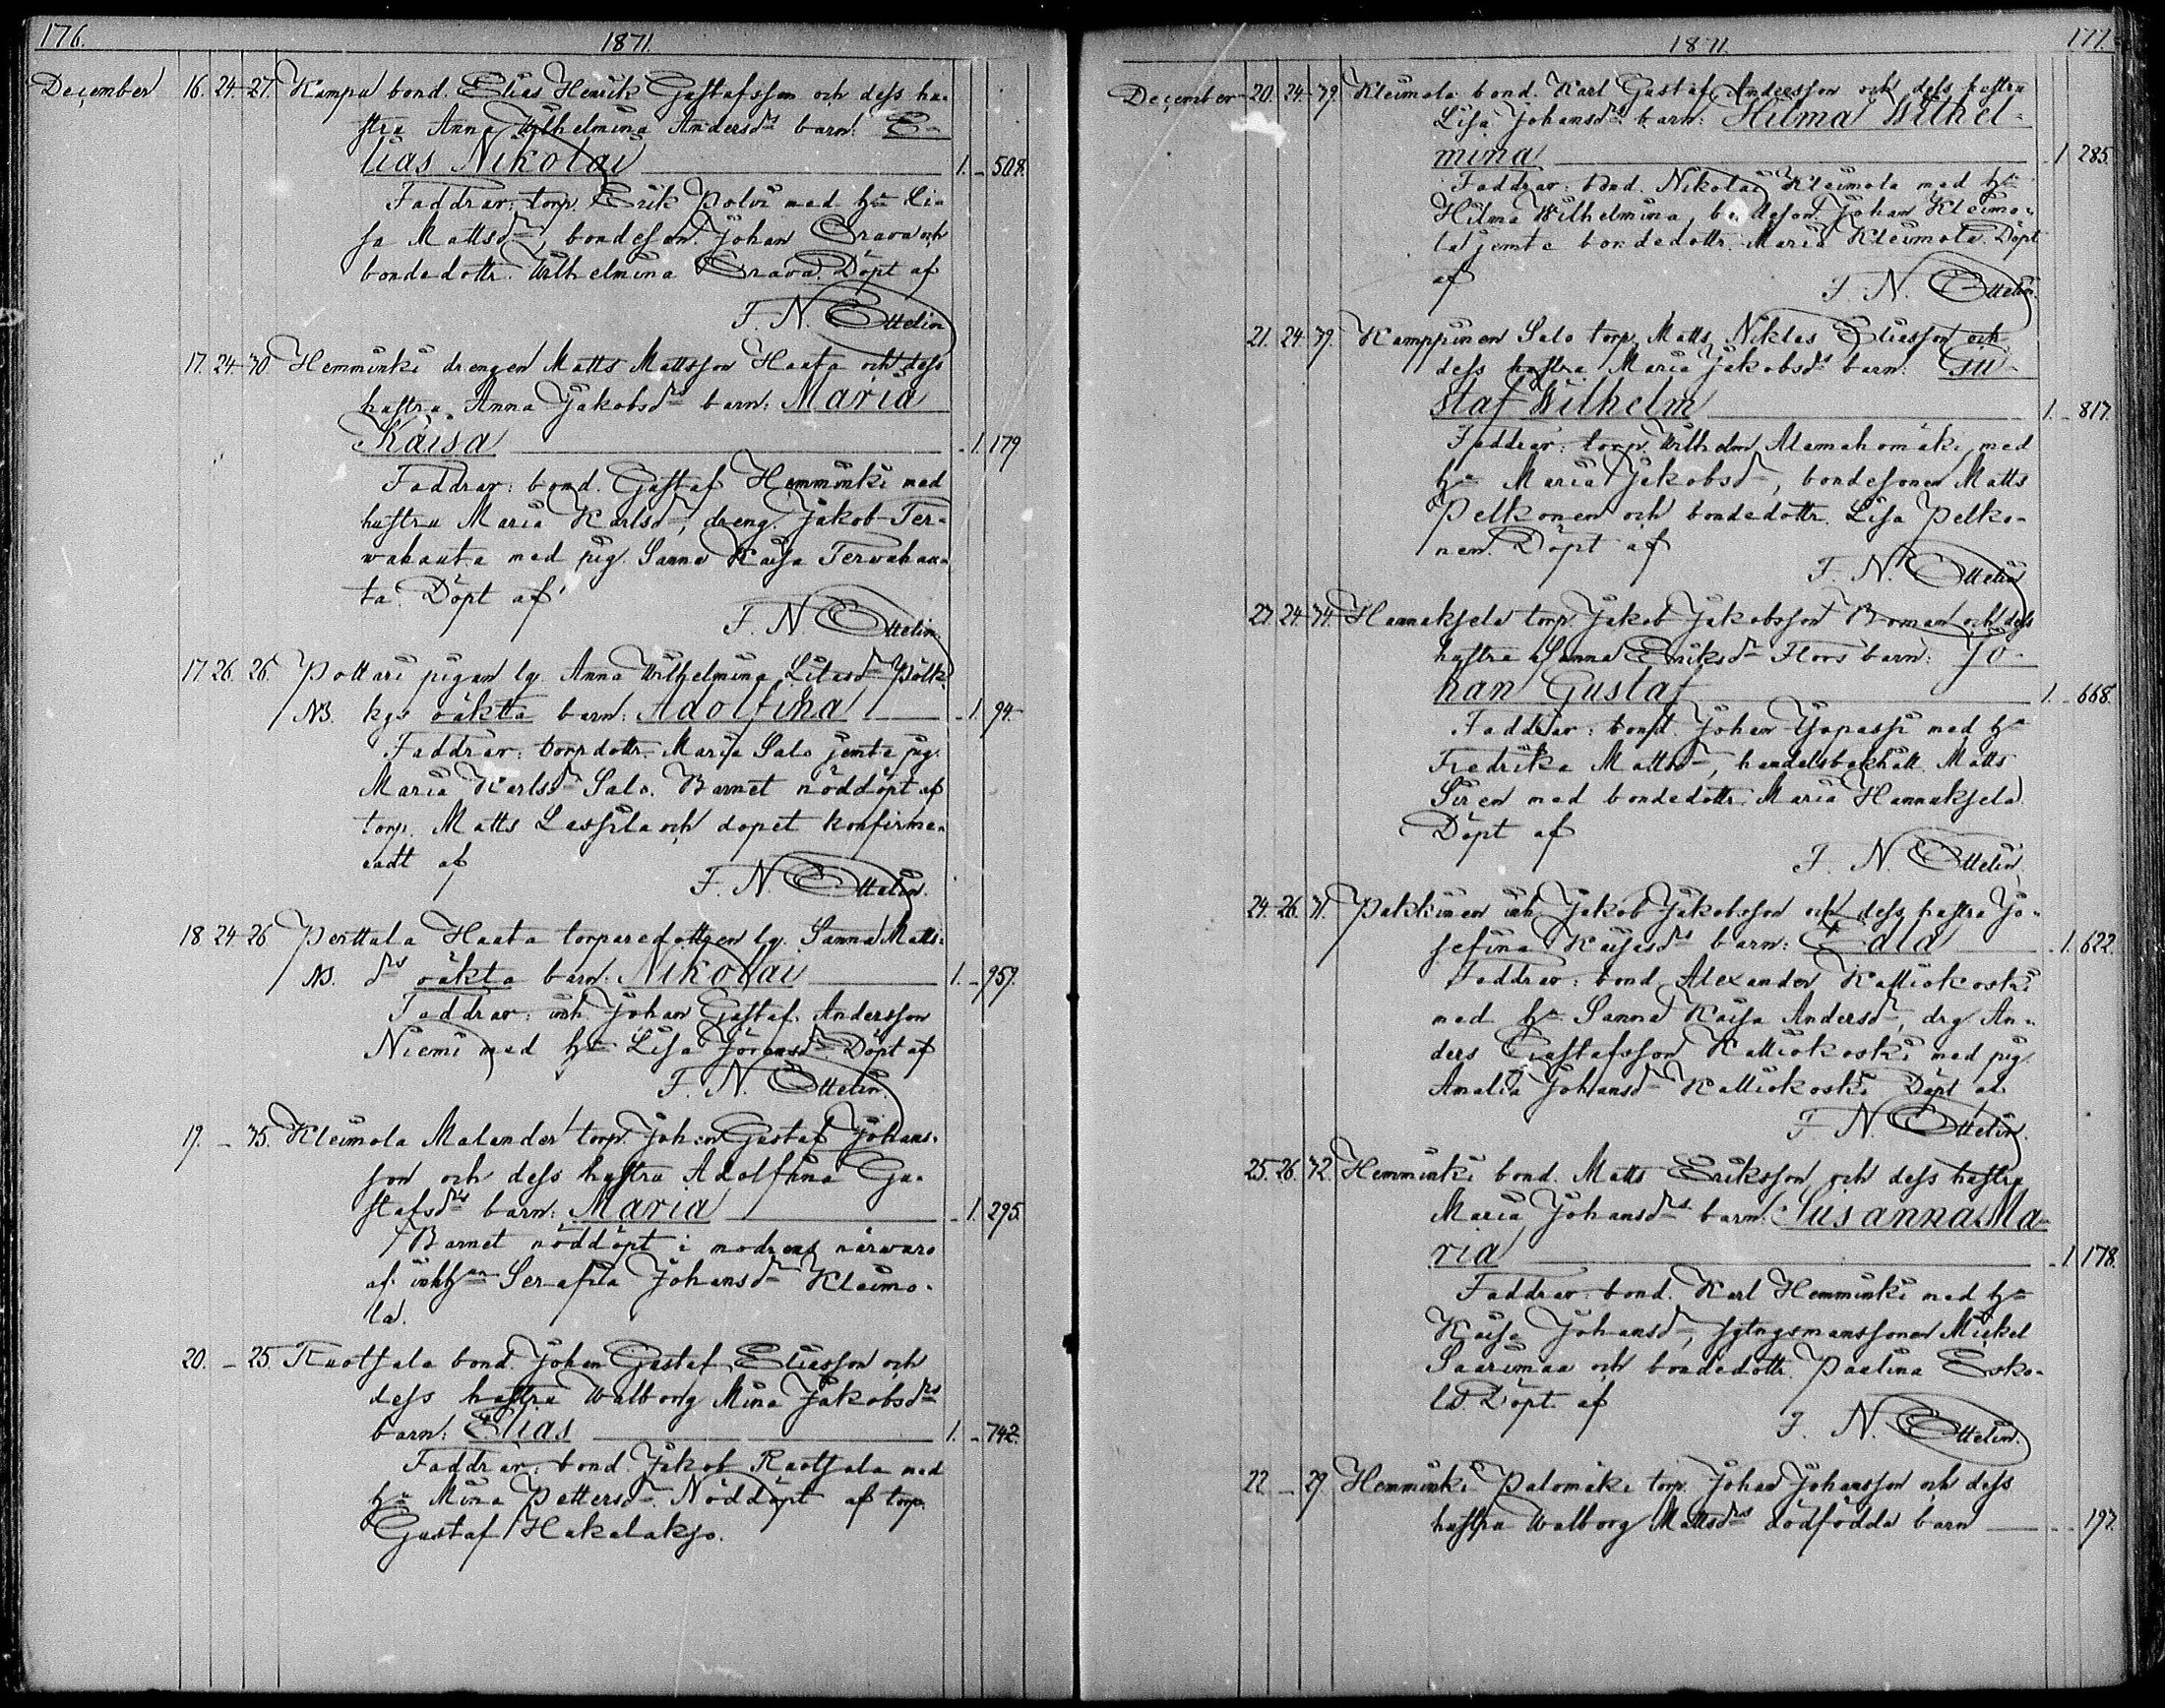 176.
1871.
December 16. 24. 27. Kampu bond. Elias Henrik Gustafsson och dess hu-
stru Anna Wilhelmina Andersdrs barn: E-
lias Nikolai 1. 508.
Faddrar: torp. Erik Polvi med hu Li-
sa Mattsdr, bondeson. Johan Orava och
bondedottr. Wilhelmina Orava. Döpt af
F. N. Ottelin
17. 24. 30 Hemminki drengen Matts Mattsson Haata och dess
hustru Anna Jakobsdrs barn: Maria
Kaisa 1. 179
Faddrar: bond. Gustaf Hemminki med
hustru Maria Karlsdr, dreng. Jakob Ter-
wahauta med pig. Sanna Kaisa Terwahau-
ta. Döpt af
F. N. Ottelin.
17. 26. 26. Pottari pigan lg. Anna Wilhelmina
NB. oäkta barn: Adolfina 1. 94.
Faddrar: torpdottr. Maria Salo jemte pig.
Maria Karlsdr Salo. Barnet nöddöpt af
torp. Matts Lassila och dopet konfirme-
radt af
F. N. Ottelin.
18. 24. 26 Penttala Haata torparedottren lg. Sanna Matts-
NB. drs oäkta barn: Nikolai 1. 959.
Faddrar: inh. Johan Gustaf Andersson
Niemi med hu Lisa Döpt af
F. N. Ottelin.
19. 35. Kleimola Malander torp. Johan Gustaf Johans-
son och dess hustru Adolfina Gu-
stafsdrs barn: Maria 1. 295.
Barnet nöddöpt i modrens närvaro
af Serafia Johansdr Kleimo-
la.
20. 25. Ruotsala bond. Johan Gustaf Eliasson och
dess hustru Walborg Mina Jakobsdrs
barn: Elias 1. 742.
Faddrar: bond. Jakob Ruotsala med
hu Mina Pettersdr. Nöddöpt af torp.
Gustaf Hakalakso.
1871.
177.
December 20. 24. 39. Kleimola bond. Karl Gustaf Andersson och dess hustru
Lisa Johansdrs barn: Hilma Wilhel-
mina 1. 285.
Faddrar: bond. Nikolai Kleimola med hu
Hilma Wilhelmina, bondeson. Johan Kleimo-
la jemte bondedottr. Maria Kleimola. Döpt
af
F. N. Ottelin.
21. 24. 39. Kamppinen Salo torp. Matts Niklas Eliasson och
dess hustru Maria Jakobsdrs barn: Gu-
staf Wilhelm 1. 817.
Faddrar: torp. Wilhelm med
hu Maria Jakobsdr, bondesonen Matts
Pelkonen och bondedottr. Lisa Pelko-
nen. Döpt af
F. N. Ottelin
24. 34. Hannuksela torp. Jakob Jakobsson Roman och dess
hustru Sanna Eriksdr barn: Jo-
han Gustaf 1. 668.
Faddrar: Johan med hu
Fredrika Mattsdr, Matts
Siren med bondedottr. Maria Hannuksela.
Döpt af
F. N. Ottelin
24. 26. 31. Pakkinen inh. Jakob Jakobsson och dess hustru Jo-
sefina Kaisasdrs barn: Edla 1. 622.
Faddrar: bond. Alexander Kattiokoski
med hu Sanna Kaisa Andersdr, drg An-
ders Gustafsson Kattiokoski med pig.
Amalia Johansdr Kattiokoski. Döpt af
F. N. Ottelin.
25. 26. 32. Hemminki bond. Matts Eriksson och dess hustru
Maria Johansdrs barn: Susanna Ma-
ria 1. 178.
Faddrar: bond. Karl Hemminki med hu
Kaisa Johansdr, Mickel
Saarimaa och bondedottr. Paulina Esko-
la. Döpt af
F. N. Ottelin.
22 29. Hemminki Palomäki torp. Johan Johansson och dess
hustru Walborg Mattsdrs dödfödda barn 197.